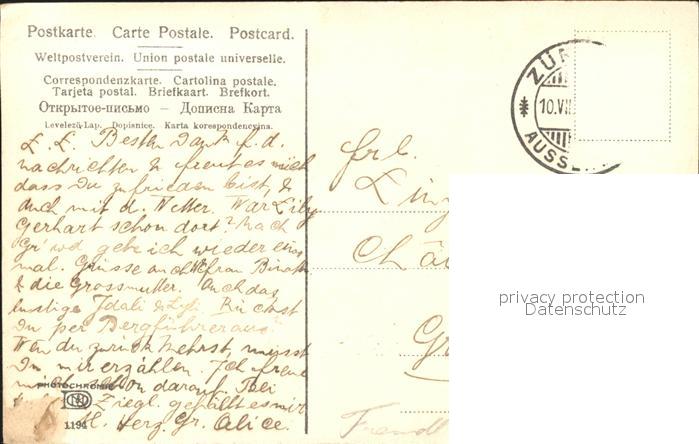 Postkarte. Carte Postale. Postcard.
Weltpostverein. Union postale universelle.
Correspondenzkarte. Cartolina postale.
Tarjeta postal. Briefkaart. Brefkort.
Открытое-письмо — Дописна Карта
Levelező-Lap. Dopisnice. Karta korespondencyjna.
L. L. Besten Dank f. d.
nachrichten & freut es mich
dass Du zufrieden bist, &
auch mit d. Wetter. War Lily
Gerhart schon dort? Nach
gehe ich wieder ein
mal. Grüsse auch frau
& die Grossmutter. Auch das
lustige Idali &
Du per Bergführer aus?
Wen du zurück kehrst, musst
Du mir erzählen. Ich freue
mich schon darauf. Bei
Ziegl. gefällt es mir
Herz. Gr. Alice.
PHOTOCHROMIE
1194
ZÜR
10.VII
AUSSE
Frl.
Lin
Châ
G
privacy protection
Datenschutz